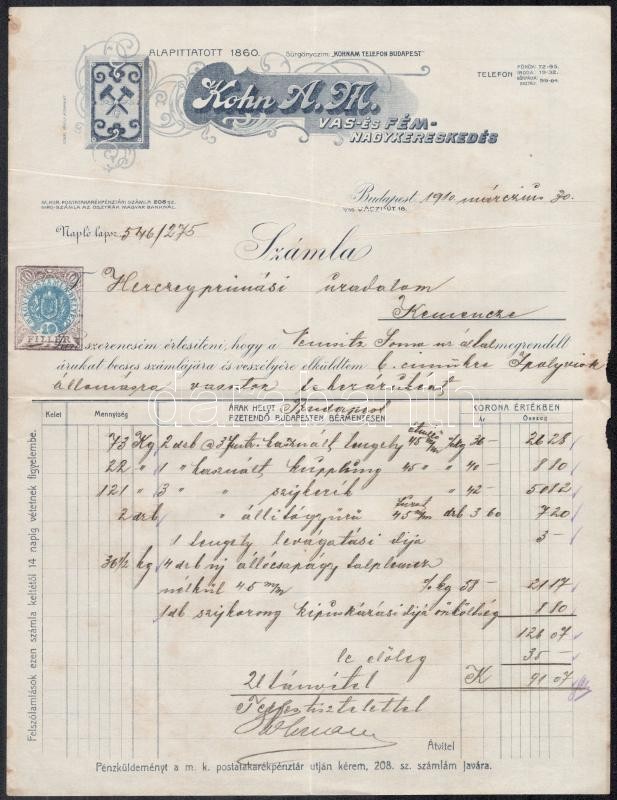 ALAPITTATOTT 1860.
Sürgönyczim: „KOHNAM TELEFON BUDAPEST"
TELEFON
Kohn A. M.
VAS- és FÉM-
NAGYKERESKEDÉS
M. KIR. POSTATAKARÉKPÉNZTÁRI SZÁMLA 208 SZ.
GIRO-SZÁMLA AZ OSZTRÁK MAGYAR BANKNÁL.
Budapest, 1910 márczius 30.
VÁCZI-ÚT 16.
Napló lapsz. 546/275
Számla
Herczegprimási uradalom
Kemencze
10 10
10
FILLÉR
szerencsém értesíteni, hogy a Soma úr által megrendelt
árukat becses számlájára és veszélyére elküldtem
állomásra vasuton teheráruként
Kelet Mennyiség ÁRAK HELYT Budapest KORONA ÉRTÉKBEN
FIZETENDŐ BUDAPESTEN BÉRMENTESEN Ár Összeg
73 Kg 2 drb használt tengely 45 m/m %kg 36 – 26 28
22 " 1 " használt kupplung 45 " " 40 – 8 80
121 " 3 " " szijkerék " 42 – 50 82
2 drb " állítógyürü 45 m/m drb 3 60 7 20
1 tengely levágatási dija 3 –
36½ kg 4 drb uj állócsapágy talplemez
nélkül 45 m/m %kg 58 – 21 17
1 db szijkorong dija önköltség 8 80
126 07
le előleg 35 –
K 91 07
Utánvétel
Teljes tisztelettel
Átvitel
Felszólamlások ezen számla keltétől 14 napig vétetnek figyelembe.
Pénzküldeményt a m. k. postatakarékpénztár utján kérem, 208. sz. számlám javára.